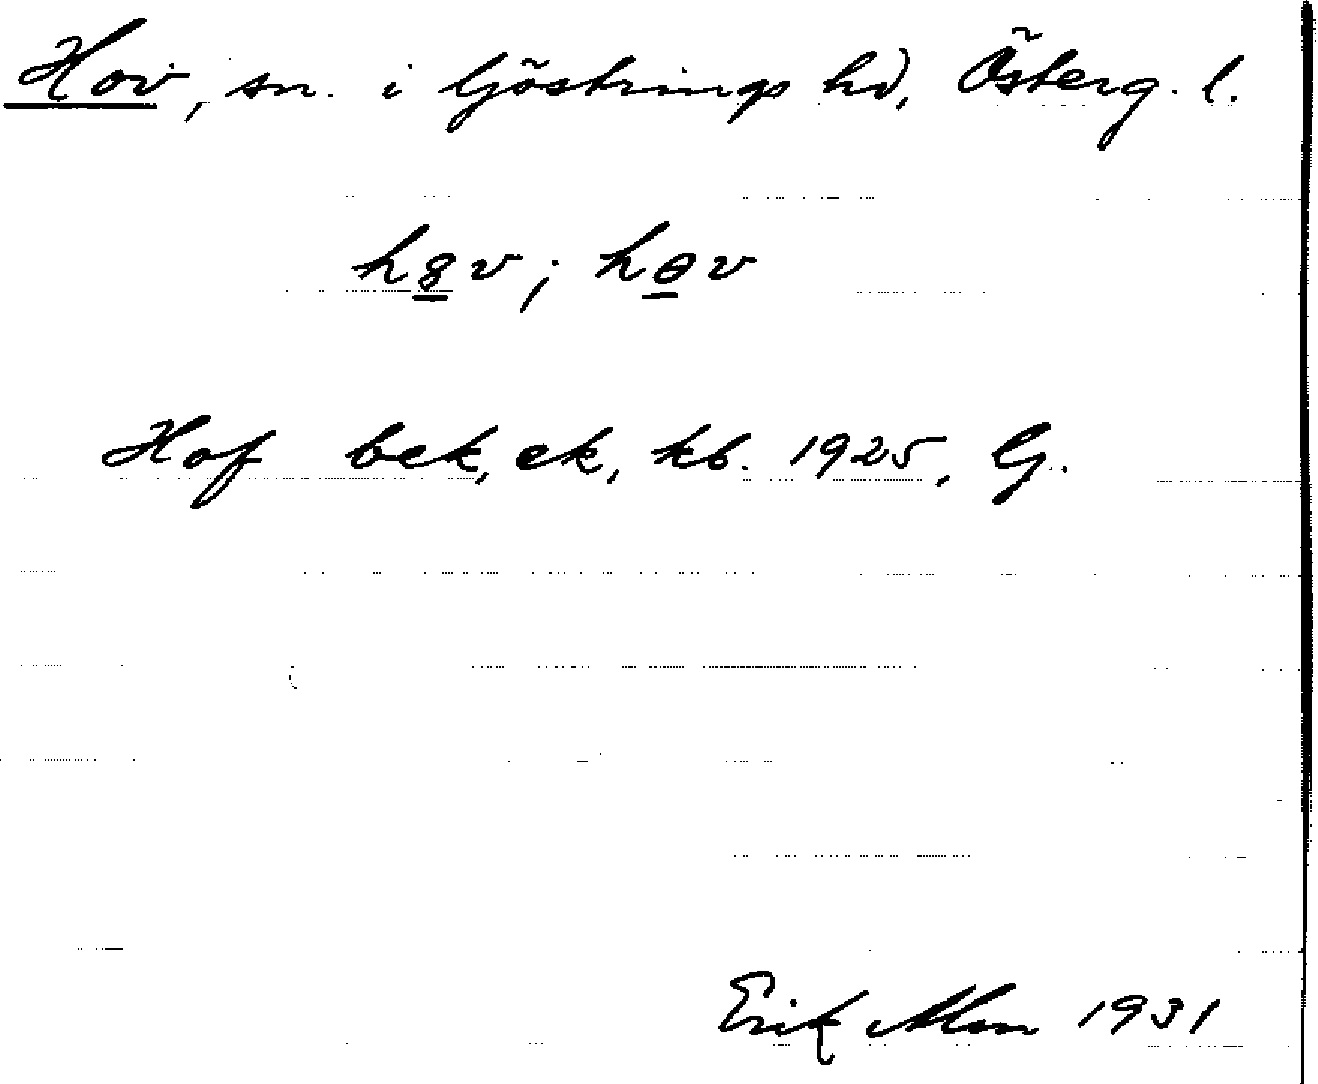 Hov, sn. i Göstrings hd, Österg. l.
h8v; hθv
Hof bek, ek, kb. 1925, G.
Erik Abm 1931